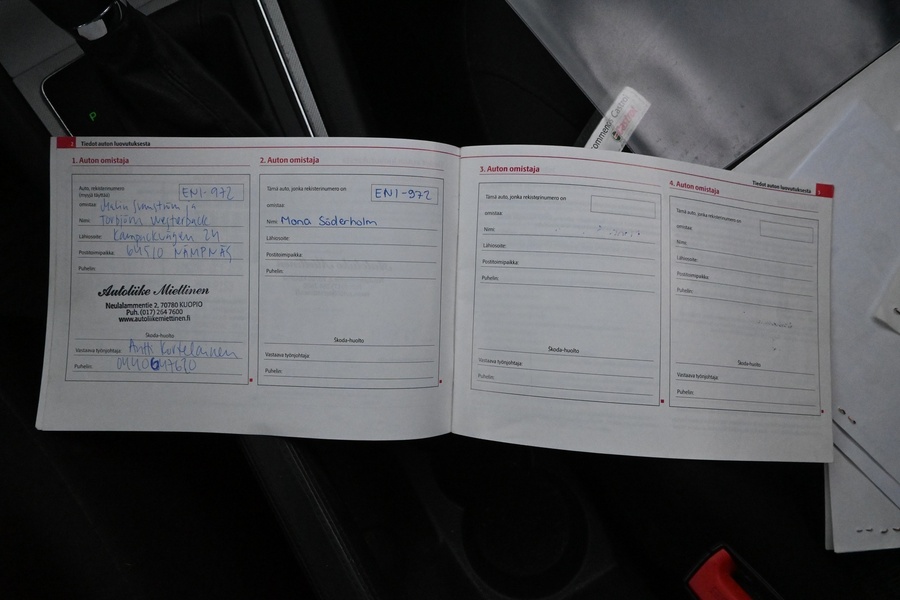 2 Tiedot auton luovutuksesta
1. Auton omistaja
Auto, rekisterinumero
ENI-972
omistaa:
Nimi: Torbjörn Westerback
Lähiosoite: 24
Postitoimipaikka: 64510 NÄMPNÄS
Puhelin:
Autoliike Miettinen
Neulalammentie 2, 70780 KUOPIO
Puh. (017) 264 7600
www.autoliikemiettinen.fi
Škoda-huolto
Vastaava työnjohtaja: Antti Kortelainen
Puhelin:
2. Auton omistaja
Tämä auto, jonka rekisterinumero on ENI-972
omistaa:
Nimi: Mona Söderholm
Lähiosoite:
Postitoimipaikka:
Puhelin:
Škoda-huolto
Vastaava työnjohtaja:
Puhelin:
3. Auton omistaja
Tämä auto, jonka rekisterinumero on
omistaa:
Nimi:
Lähiosoite:
Postitoimipaikka:
Puhelin:
Škoda-huolto
Vastaava työnjohtaja:
Puhelin:
Tiedot auton luovutuksesta 3
4. Auton omistaja
Tämä auto, jonka rekisterinumero on
omistaa:
Nimi:
Lähiosoite:
Postitoimipaikka:
Puhelin:
Škoda-huolto
Vastaava työnjohtaja:
Puhelin:
P
Castrol